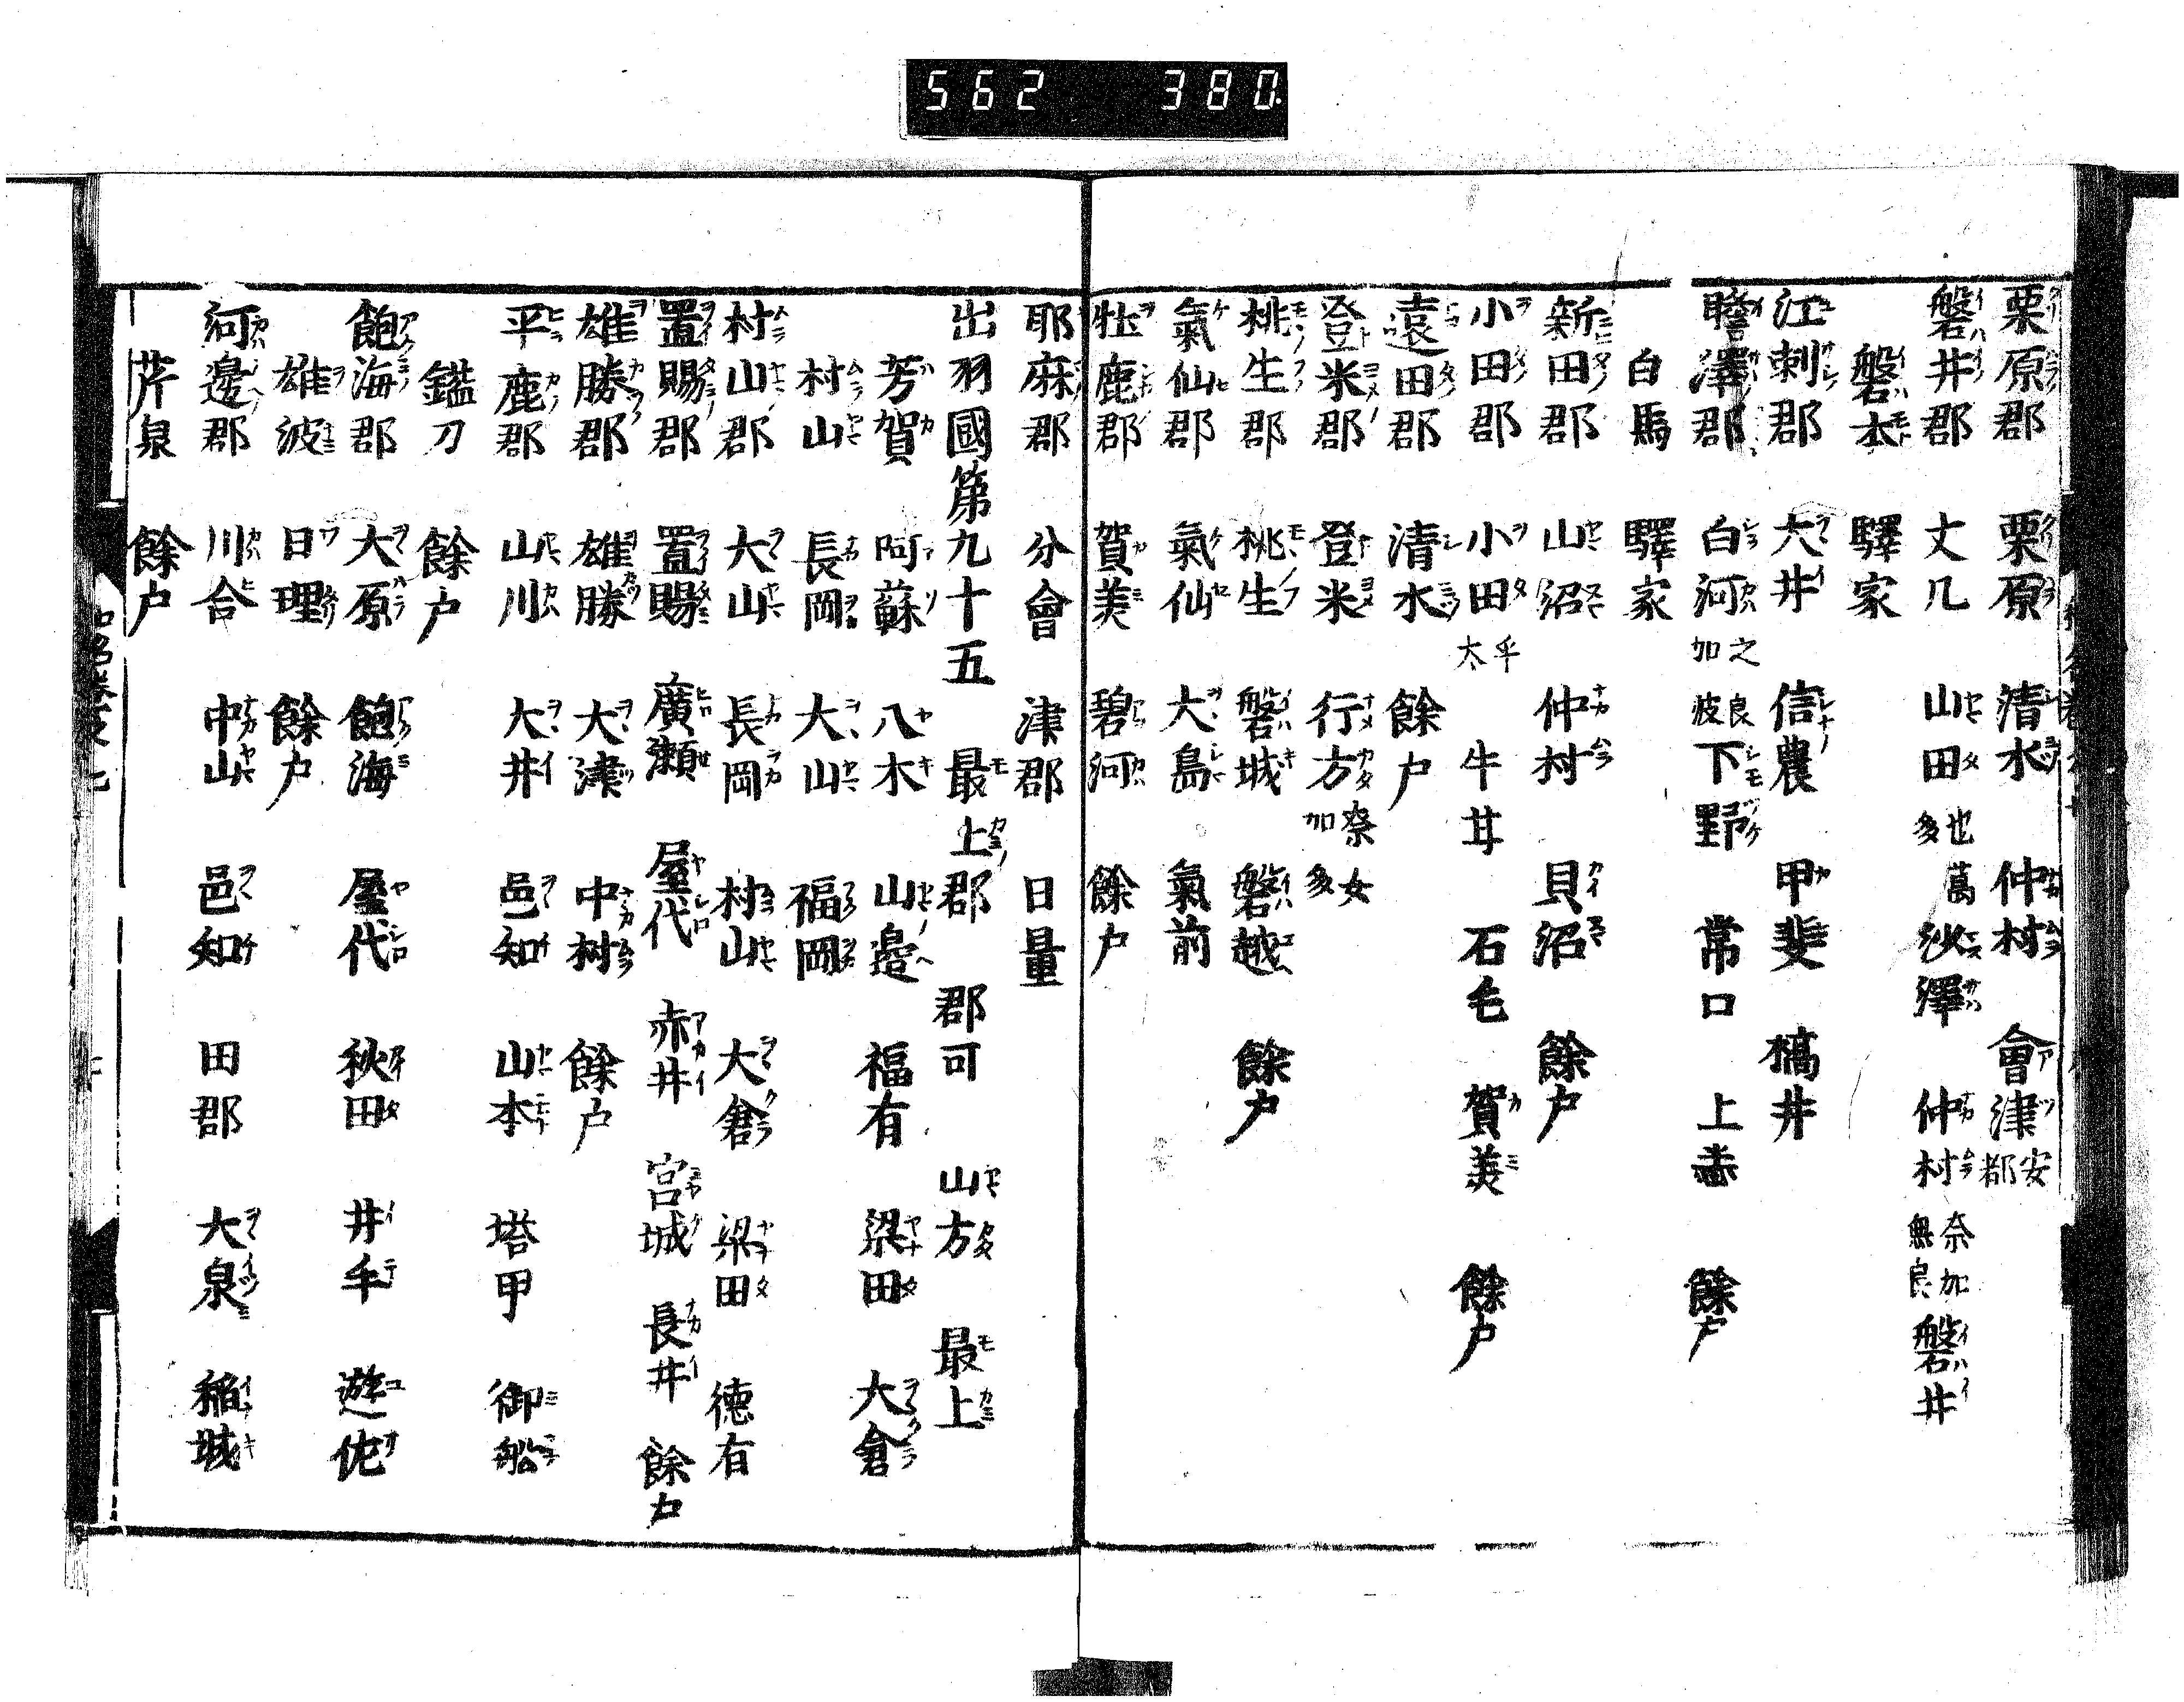 562 380
栗原郡 栗原 清水 仲村 會津安都
磐井郡 丈几 山田也多 萬 沙澤 仲村奈加無良 磐井
磐本 驛家
江刺郡 大井 信農 甲斐 槗井
膽澤郡 白河之加 下野 常口 上 餘戸
白馬 驛家
新田郡 山沼 仲村 貝沼 餘戸
小田郡 小田乎太 牛甘 石毛 賀美 餘戸
遠田郡 清水 餘戸
登米郡 登米 行方奈女加多
桃生郡 桃生 磐城 磐越 餘戸
氣仙郡 氣仙 大島 氣前
牡鹿郡 賀美 碧河 餘戸
耶麻郡 分會 津郡 日量
出羽國第九十五 最上郡 郡可 山方 最上
芳賀 阿蘇 八木 山邉 福有 梁田 大倉
村山 長岡 大山 福岡
村山郡 大山 長岡 村山 大倉 梁田 徳有
置賜郡 置賜 廣瀬 屋代 赤井 宮城 長井 餘戸
雄勝郡 雄勝 大津 中村 餘戸
平鹿郡 山川 大井 邑知 山本 塔甲 御船
鎰刀 餘戸
飽海郡 大原 飽海 屋代 秋田 井手 遊佐
雄波 日理 餘戸
河邊郡 川合 中山 邑知 田郡 大泉 稲城
芹泉 餘戸